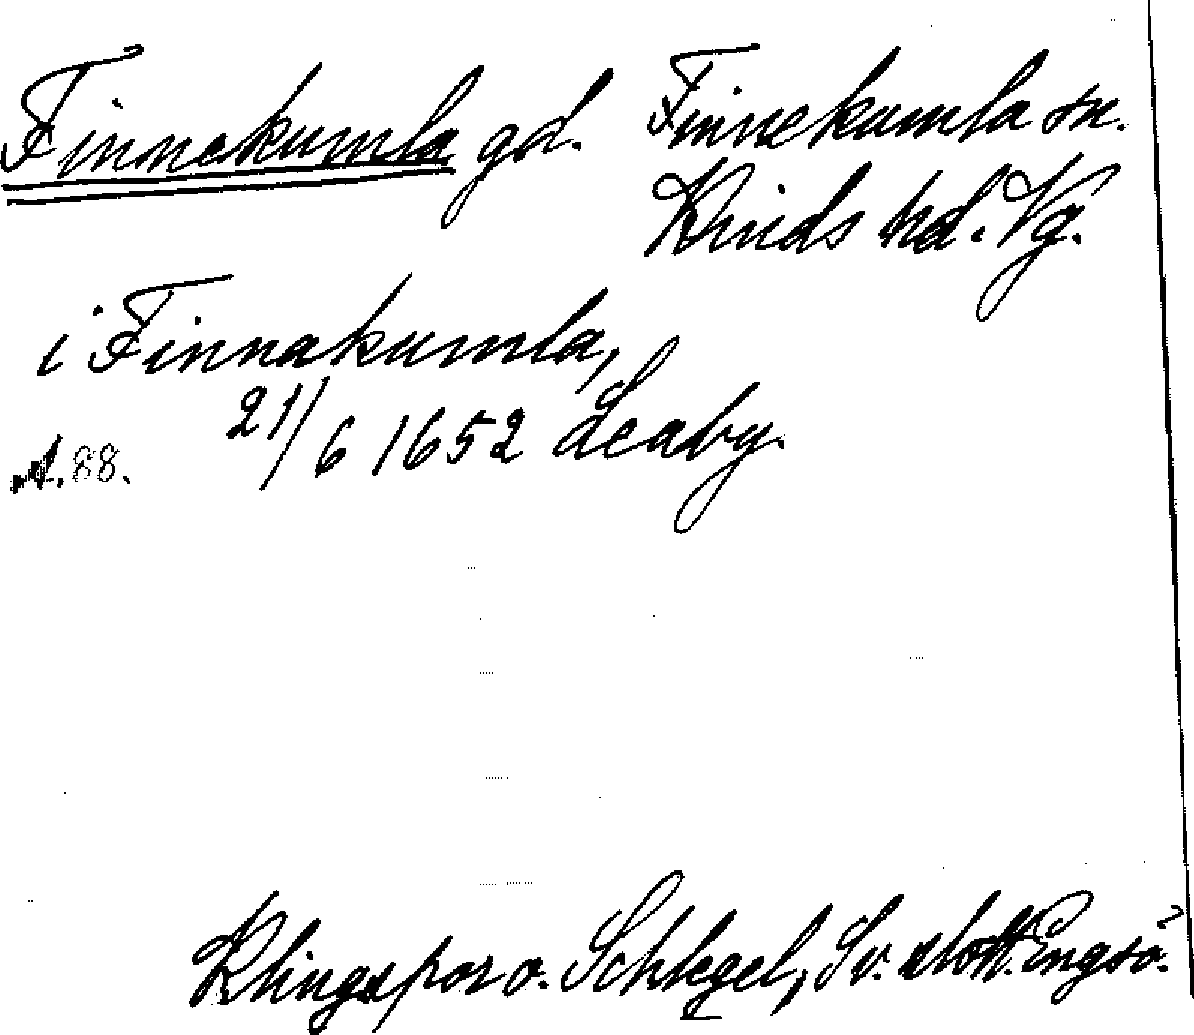 Finnekumla gd. Finnekumla sn.
Kinds hd. Vg.
i Finnakumla,
21/6 1652 Leaby.
s. 88.
Klingspor o. Schlegel, Sv. slott. Engsö.